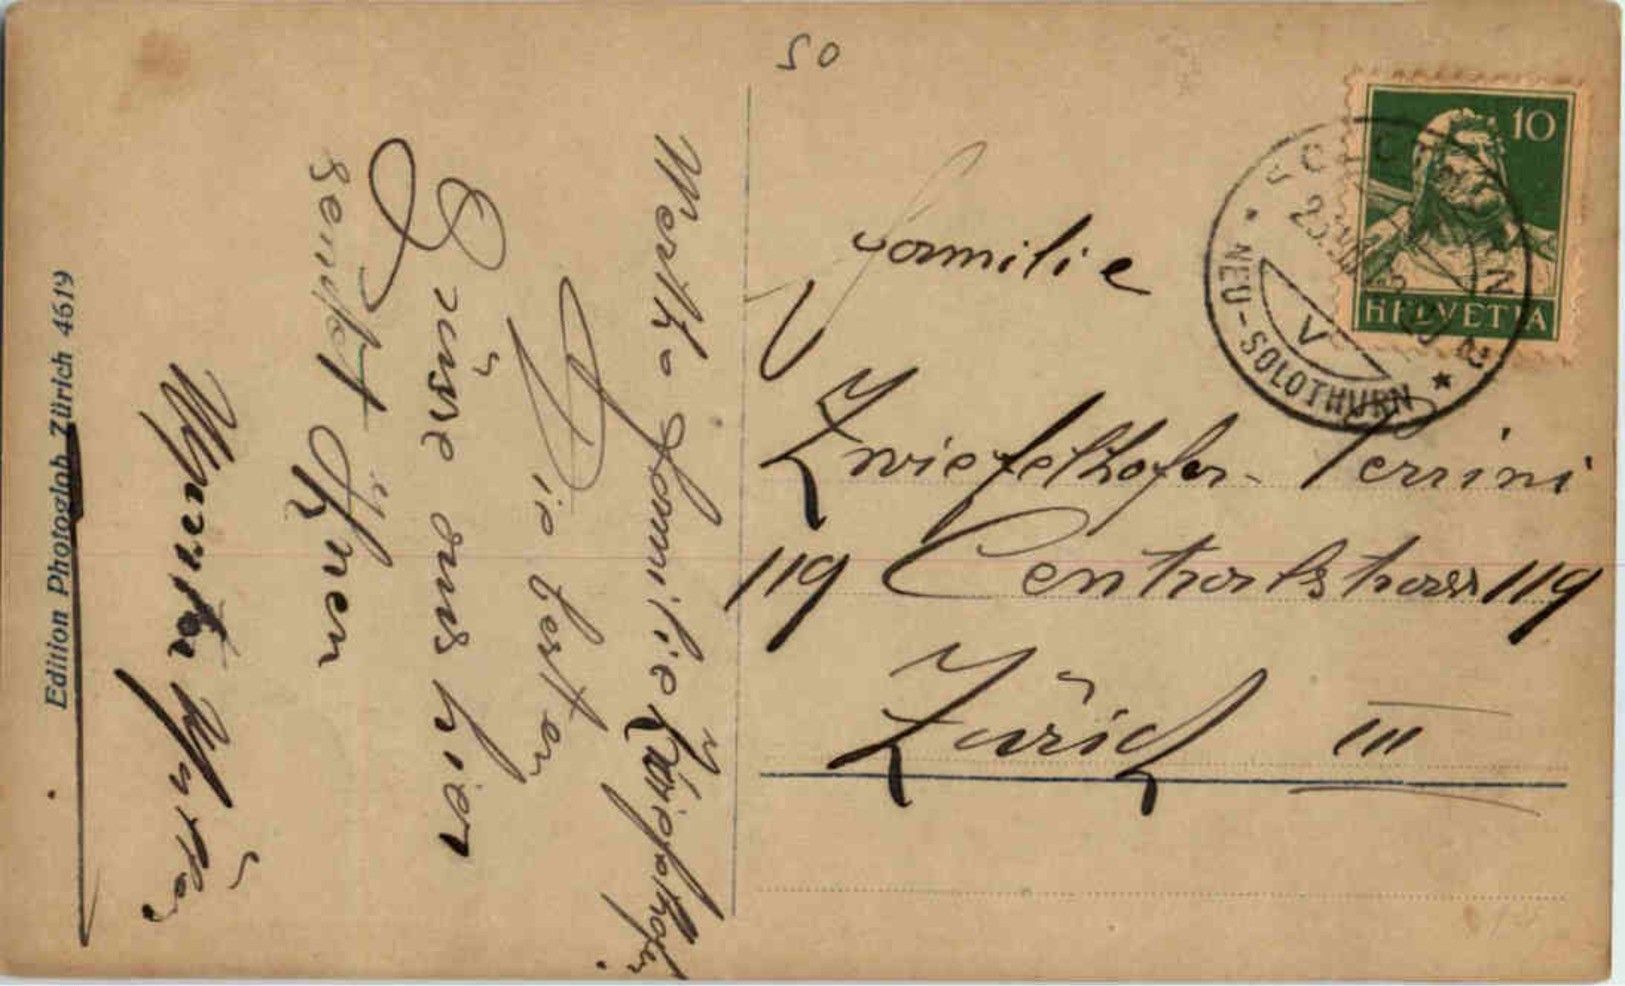 50
10
HELVETIA
NEU-SOLOTHURN
V
Familie
Zwiefelhofer-Perrini
119 Centralstrasse 119
Zürich III
Werthe Familie Zwiefelhofer!
Die besten
Grüsse aus hier
sendet Ihnen
Edition Photoglob Zürich 4619